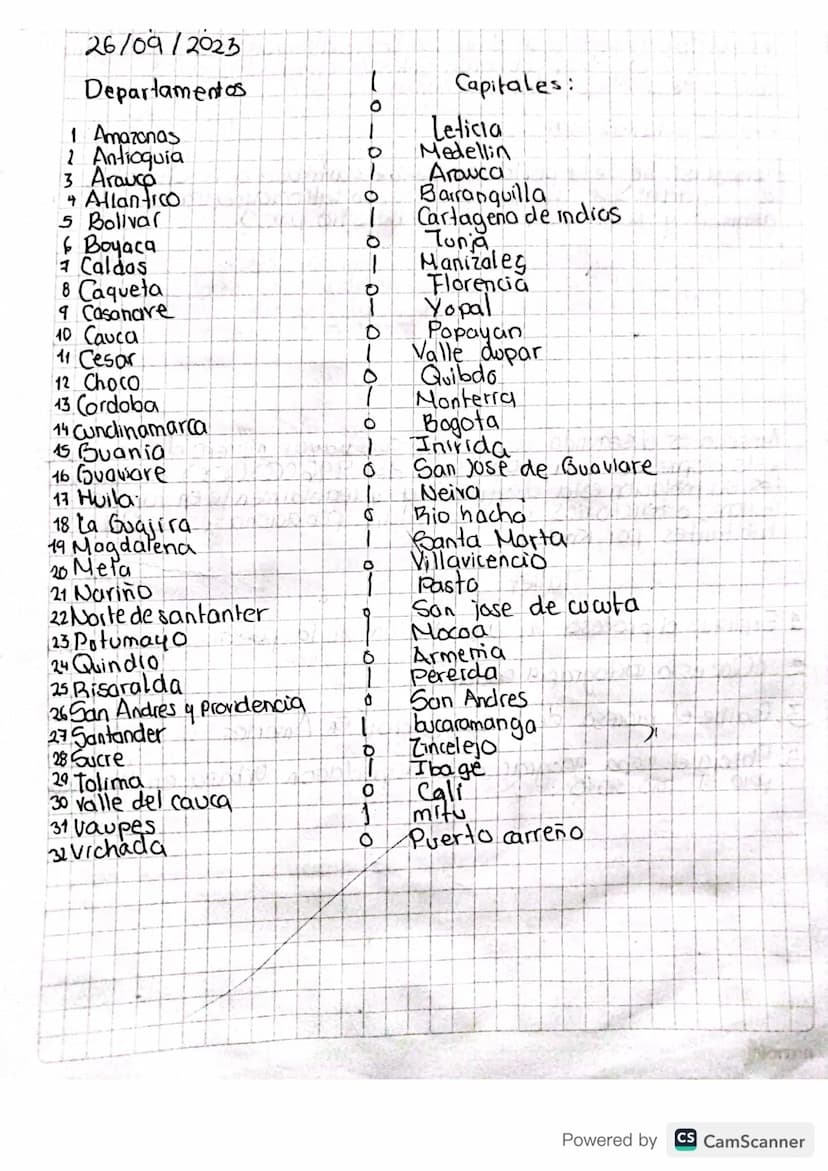 26/09/2023
Departamentos Capitales:
1 Amazonas Leticia
2 Antioquia Medellin
3 Arauca Arauca
4 Atlantico Barranquilla
5 Bolivar Cartagena de indias
6 Boyaca Tunja
7 Caldas Manizales
8 Caqueta Florencia
9 Casanare Yopal
10 Cauca Popayan
11 Cesar Valle dupar
12 Choco Quibdo
13 Cordoba Monterra
14 Cundinamarca Bogota
15 Guania Inirida
16 Guaviare San jose de Guaviare
17 Huila Neiva
18 La Guajira Rio hacha
19 Magdalena Santa Marta
20 Meta Villavicencio
21 Nariño Pasto
22 Norte de santanter San jose de cucuta
23 Potumayo Mocoa
24 Quindio Armenia
25 Risaralda Pereida
26 San Andres y providencia San Andres
27 Santander bucaramanga
28 Sucre Zincelejo
29 Tolima Ibage
30 valle del cauca Cali
31 Vaupes mitu
32 Vichada Puerto carreño
Norma
Powered by CS CamScanner